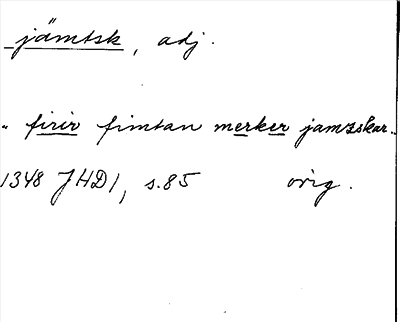 jämtsk, adj.
" firir fimtan merker jamzskar"
1348 JHD1, s.85 orig.